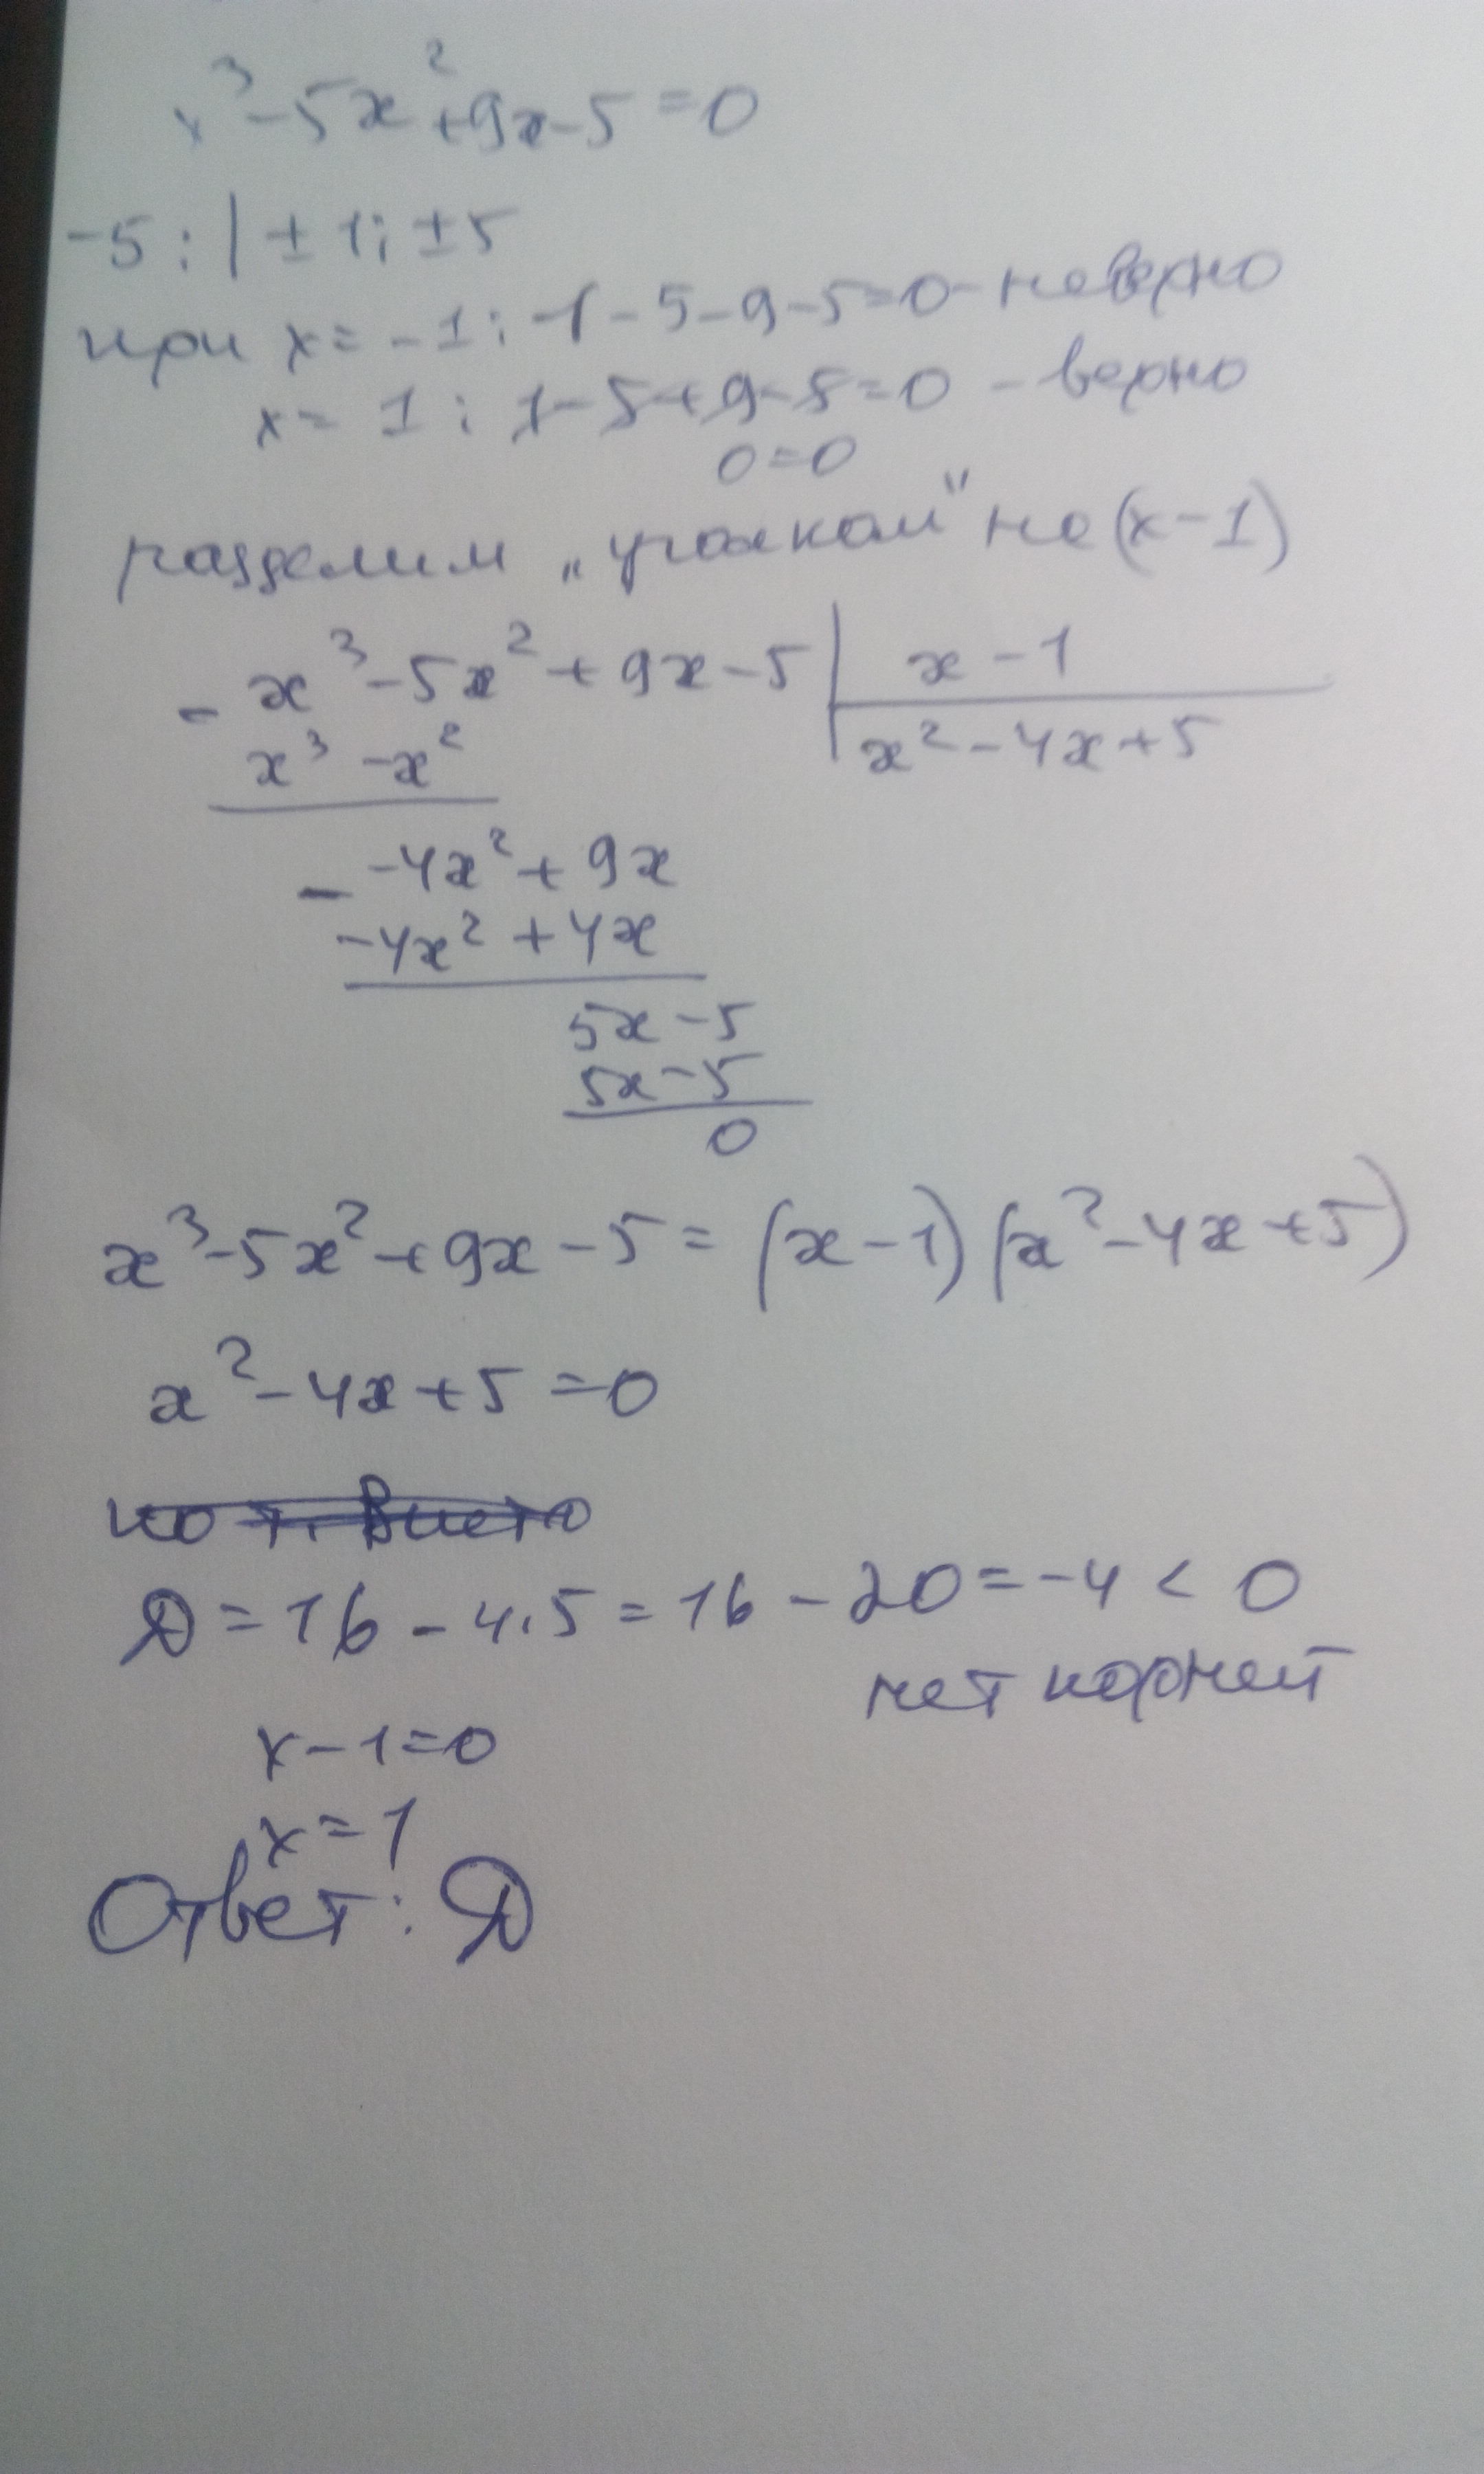 x³-5x²+9x-5=0
-5:|±1;±5
при x=-1: -1-5-9-5=0-неверно
x=1: 1-5+9-5=0 - верно
0=0
разделим „уголком" на (x-1)
- x³-5x²+9x-5 | x-1
x³-x² x²-4x+5
- -4x²+9x
-4x²+4x
5x-5
5x-5
0
x³-5x²+9x-5=(x-1)(x²-4x+5)
x²-4x+5=0
по т. Виета
D=16-4.5=16-20=-4<0
нет корней
x-1=0
x=1
Ответ: Д